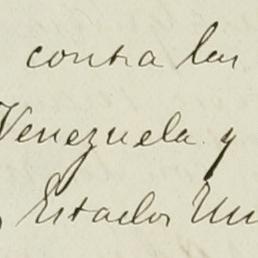 contra las
Venezuela y
Estados Uni